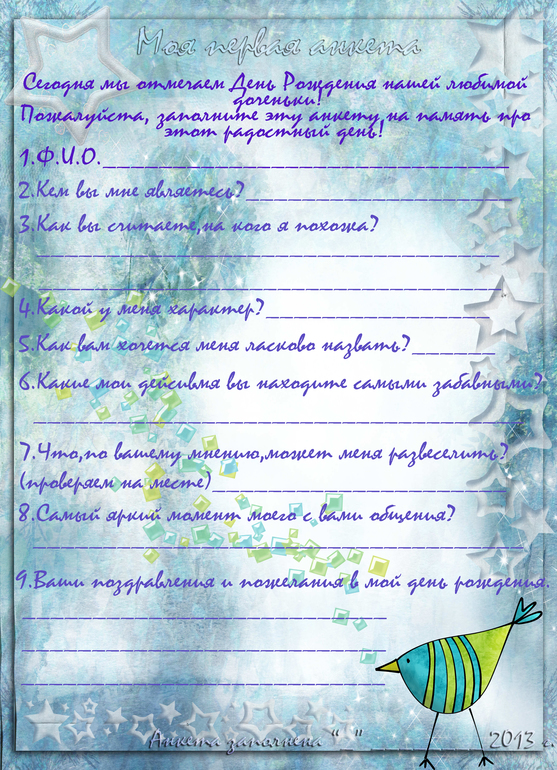 Моя первая анкета
Сегодня мы отмечаем День Рождения нашей любимой
доченьки!
Пожалуйста, заполните эту анкету на память про
этот радостный день!
1.Ф.И.О.______________________________
2.Кем вы мне являетесь?____________________
3.Как вы считаете,на кого я похожа?
___________________________________
___________________________________
4.Какой у меня характер?_________________
5.Как вам хочется меня ласково назвать?______
6.Какие мои дейсивмя вы находите самыми забавными?
____________________________________
7.Что,по вашему мнению,может меня развеселить?
(проверяем на месте)______________________
8.Самый яркий момент моего с вами общения?
____________________________________
9.Ваши поздравления и пожелания в мой день рождения.
___________________________
___________________________
___________________________
Анкета заполнена "__"__________2013 г.